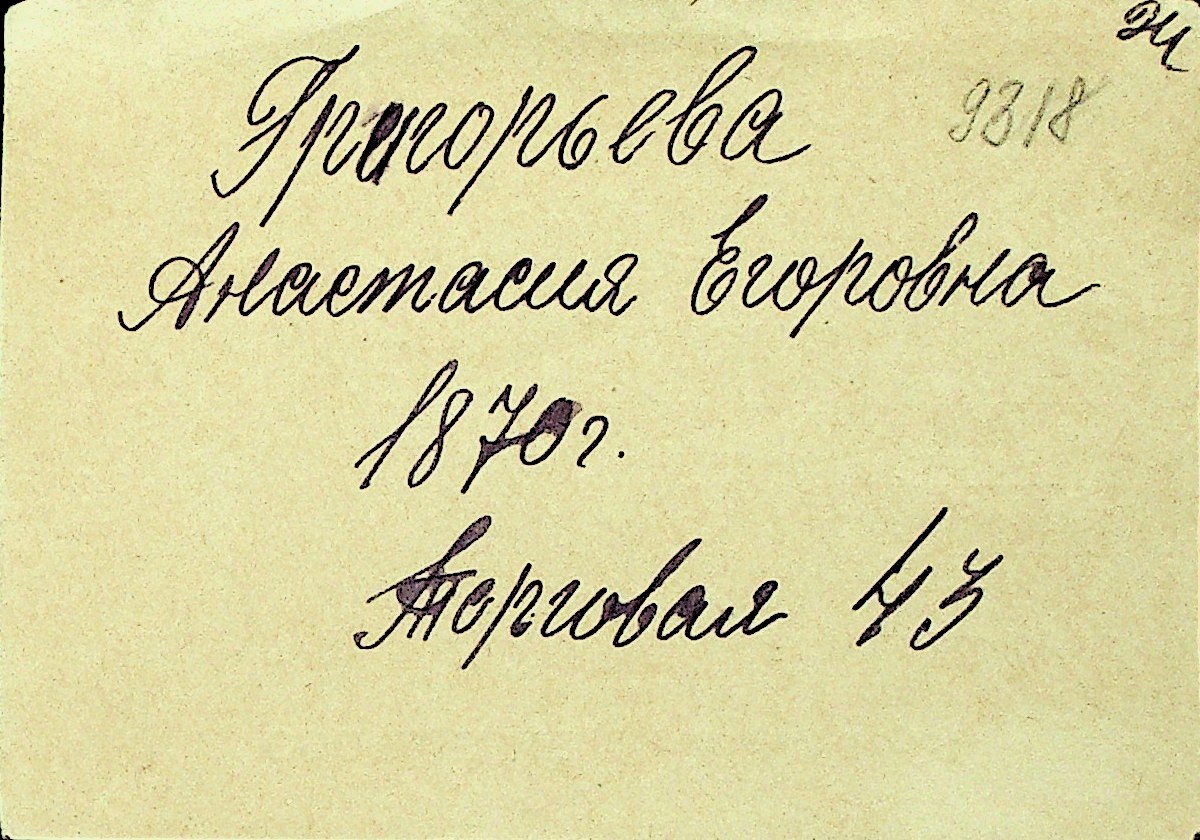 Григорьева 9318
Анастасия Егоровна
1870 г.
Торговая 43